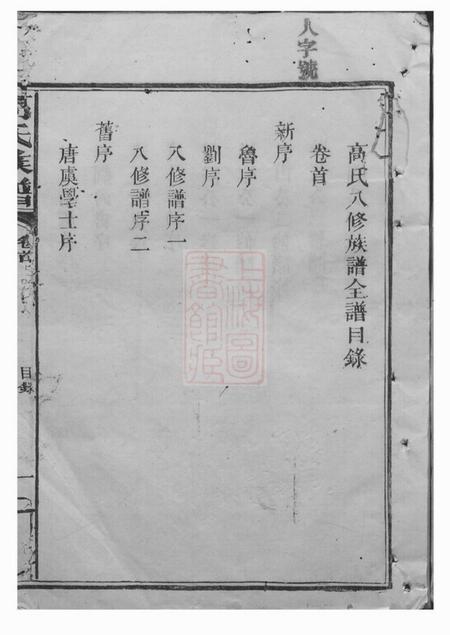 人字號
高氏八修族譜全譜目錄
卷首
新序
魯序
劉序
八修譜序一
八修譜序二
舊序
唐虞學士序
高氏族譜
卷首
目錄
一
上海圖
書館藏